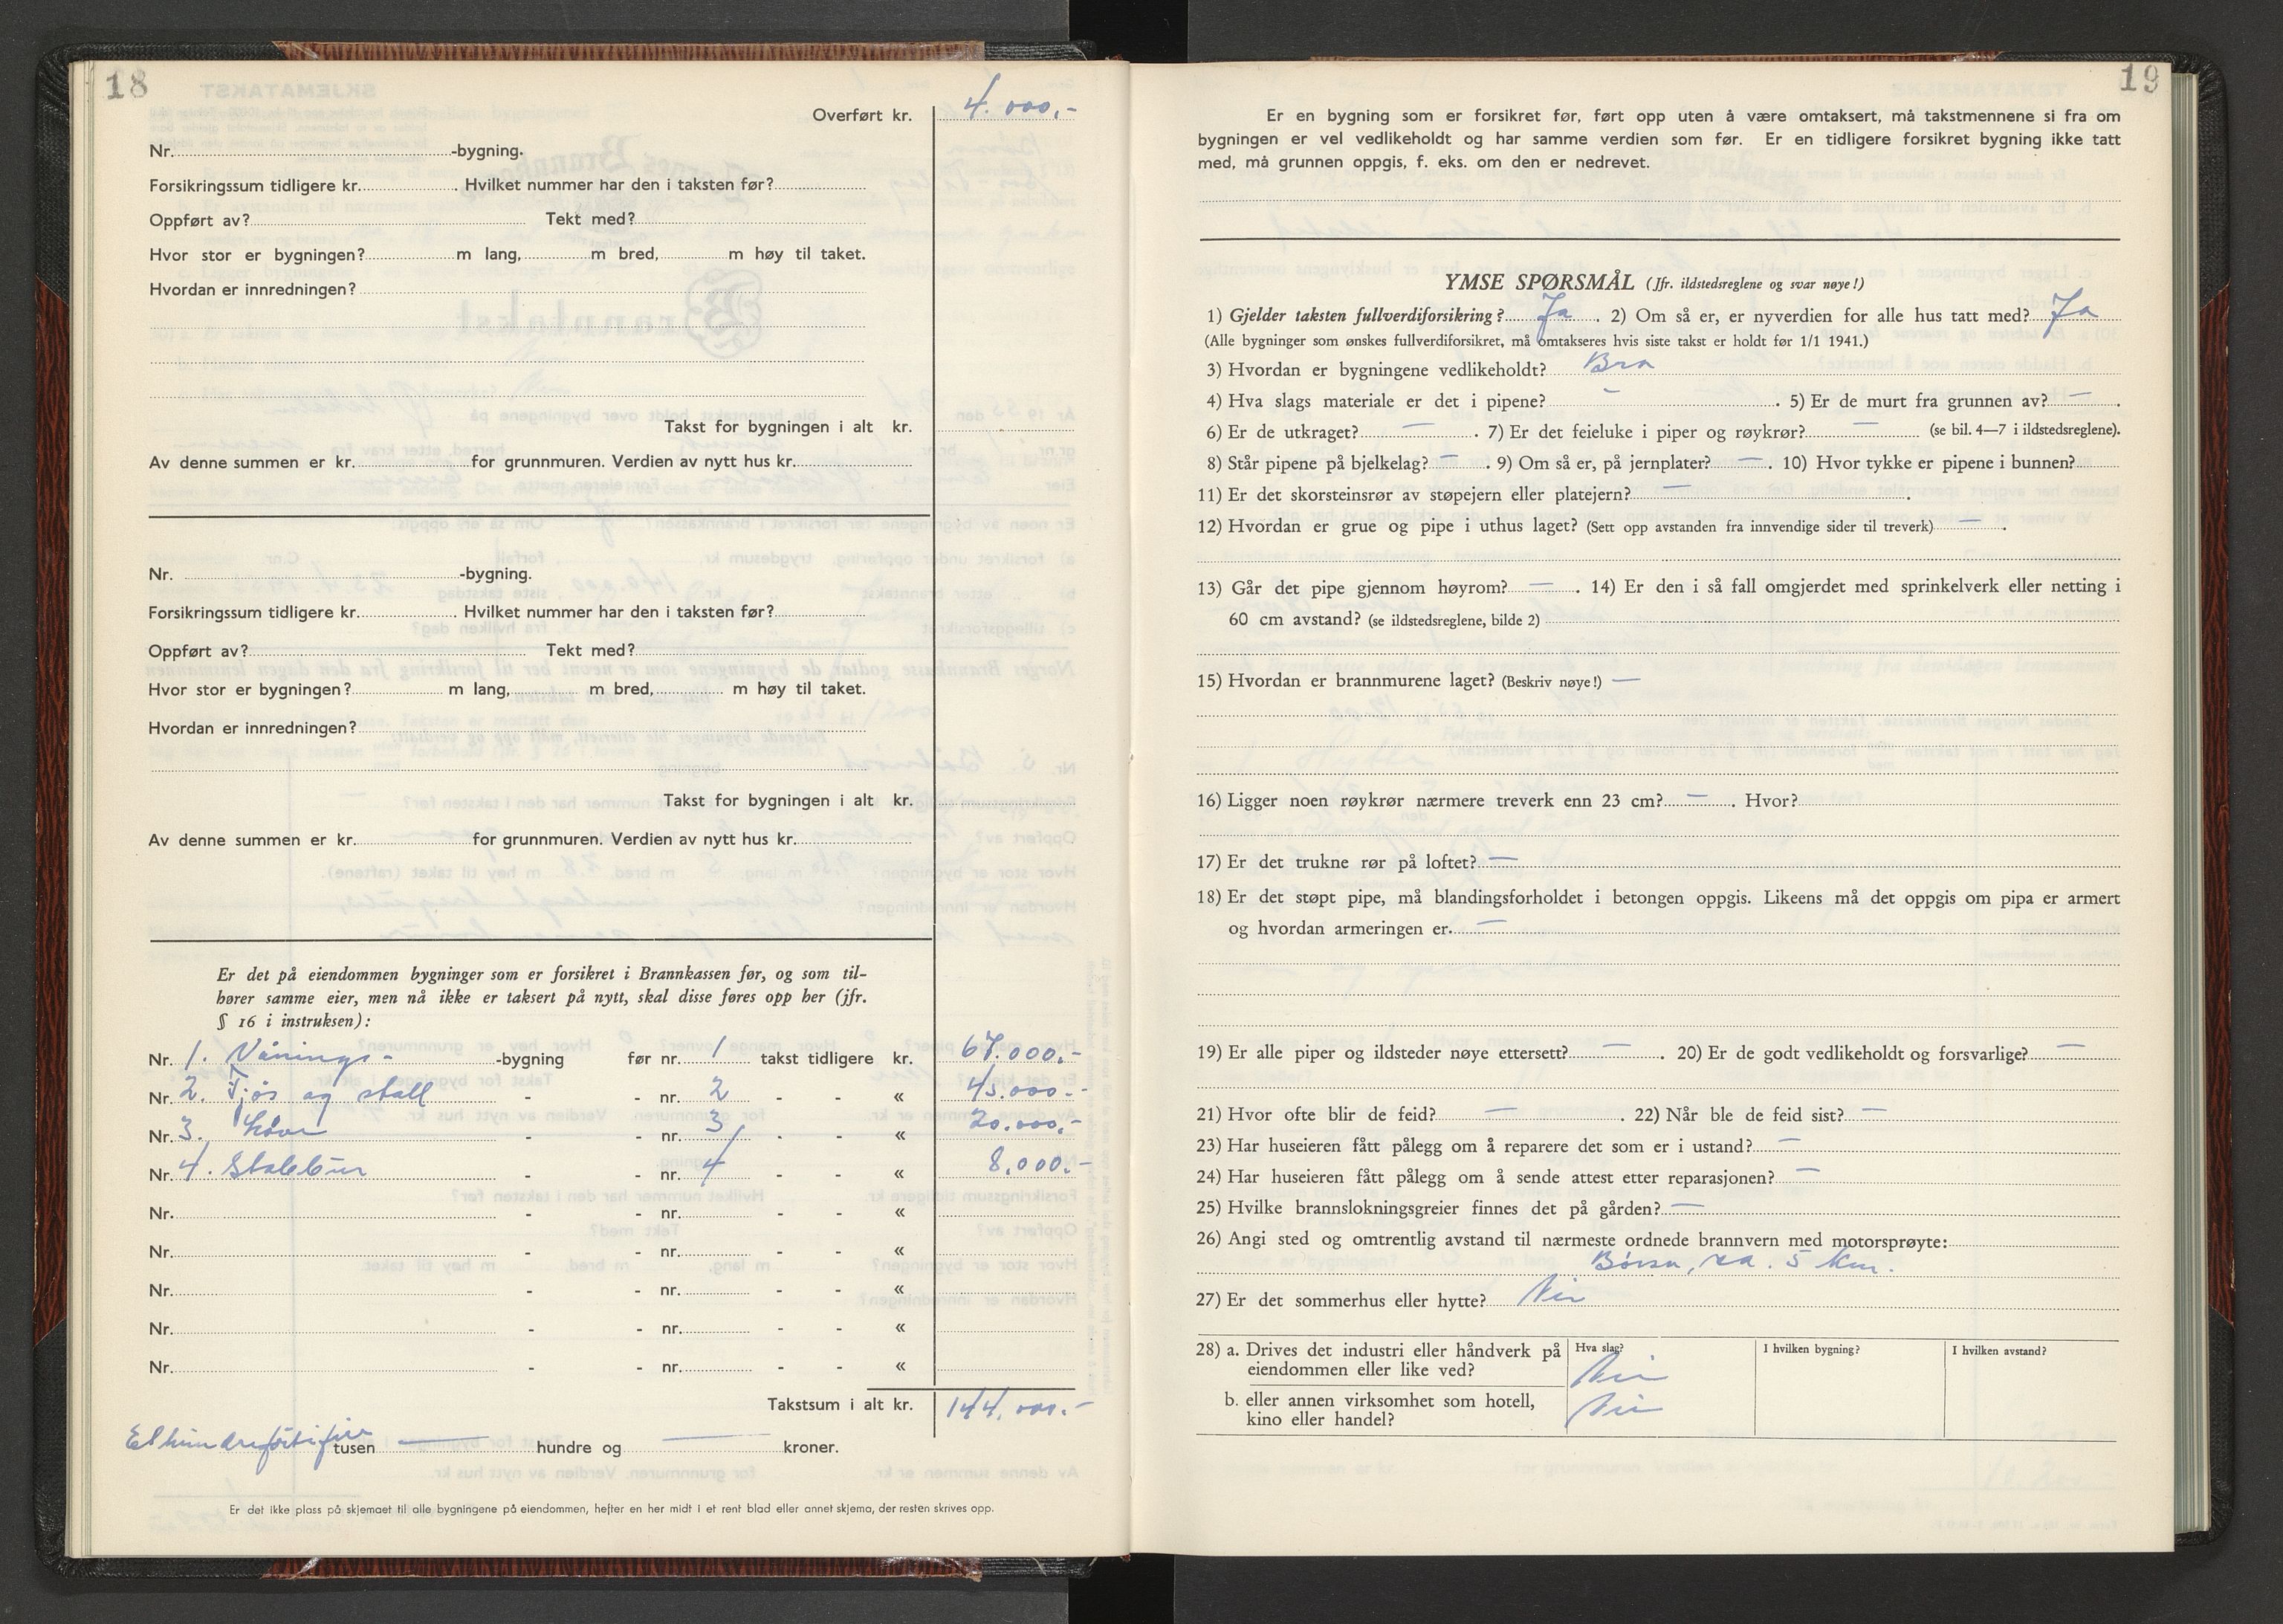 18
Overført kr. 4.000,-
Nr. -bygning.
Forsikringssum tidligere kr. . Hvilket nummer har den i taksten før?
Oppført av? Tekt med?
Hvor stor er bygningen? m lang, m bred, m høy til taket.
Hvordan er innredningen?
Takst for bygningen i alt kr.
Av denne summen er kr. for grunnmuren. Verdien av nytt hus kr.
Nr. -bygning.
Forsikringssum tidligere kr. . Hvilket nummer har den i taksten før?
Oppført av? Tekt med?
Hvor stor er bygningen? m lang, m bred, m høy til taket.
Hvordan er innredningen?
Takst for bygningen i alt kr.
Av denne summen er kr. for grunnmuren. Verdien av nytt hus kr.
Er det på eiendommen bygninger som er forsikret i Brannkassen før, og som til-
hører samme eier, men nå ikke er taksert på nytt, skal disse føres opp her (jfr.
§ 16 i instruksen):
Nr. 1. Vånings- -bygning før nr. 1 takst tidligere kr. 67.000,-
Nr. 2. Fjøs og stall - - nr. 2 - - « 45.000.-
Nr. 3. Låve - nr. 3 - - « 20.000,-
Nr. 4. Stabbur - - nr. 4 - - « 8.000.-
Nr. - - nr. - - «
Nr. - - nr. - - «
Nr. - - nr. - - «
Nr. - - nr. - - «
Nr. - - nr. - - «
Takstsum i alt kr. 144.000.-
Ethundreførtifire tusen — hundre og — kroner.
Er det ikke plass på skjemaet til alle bygningene på eiendommen, hefter en her midt i et rent blad eller annet skjema, der resten skrives opp.
19
Er en bygning som er forsikret før, ført opp uten å være omtaksert, må takstmennene si fra om
bygningen er vel vedlikeholdt og har samme verdien som før. Er en tidligere forsikret bygning ikke tatt
med, må grunnen oppgis, f. eks. om den er nedrevet.
YMSE SPØRSMÅL (Jfr. ildstedsreglene og svar nøye!)
1) Gjelder taksten fullverdiforsikring? Ja . 2) Om så er, er nyverdien for alle hus tatt med? Ja
(Alle bygninger som ønskes fullverdiforsikret, må omtakseres hvis siste takst er holdt før 1/1 1941.)
3) Hvordan er bygningene vedlikeholdt? Bra
4) Hva slags materiale er det i pipene? - . 5) Er de murt fra grunnen av? — .
6) Er de utkraget? — . 7) Er det feieluke i piper og røykrør? — (se bil. 4—7 i ildstedsreglene).
8) Står pipene på bjelkelag? — . 9) Om så er, på jernplater? — . 10) Hvor tykke er pipene i bunnen?
11) Er det skorsteinsrør av støpejern eller platejern? — .
12) Hvordan er grue og pipe i uthus laget? (Sett opp avstanden fra innvendige sider til treverk) — .
13) Går det pipe gjennom høyrom? — . 14) Er den i så fall omgjerdet med sprinkelverk eller netting i
60 cm avstand? (se ildstedsreglene, bilde 2)
15) Hvordan er brannmurene laget? (Beskriv nøye!) —
16) Ligger noen røykrør nærmere treverk enn 23 cm? — . Hvor?
17) Er det trukne rør på loftet? —
18) Er det støpt pipe, må blandingsforholdet i betongen oppgis. Likeens må det oppgis om pipa er armert
og hvordan armeringen er. —
19) Er alle piper og ildsteder nøye ettersett? — . 20) Er de godt vedlikeholdt og forsvarlige? —
21) Hvor ofte blir de feid? — . 22) Når ble de feid sist? —
23) Har huseieren fått pålegg om å reparere det som er i ustand? —
24) Har huseieren fått pålegg om å sende attest etter reparasjonen? —
25) Hvilke brannslokningsgreier finnes det på gården? —
26) Angi sted og omtrentlig avstand til nærmeste ordnede brannvern med motorsprøyte:
Børsa, ca. 5 km.
27) Er det sommerhus eller hytte? Nei
28) a. Drives det industri eller håndverk på Hva slag? I hvilken bygning? I hvilken avstand?
eiendommen eller like ved? Nei
b. eller annen virksomhet som hotell, Nei
kino eller handel?